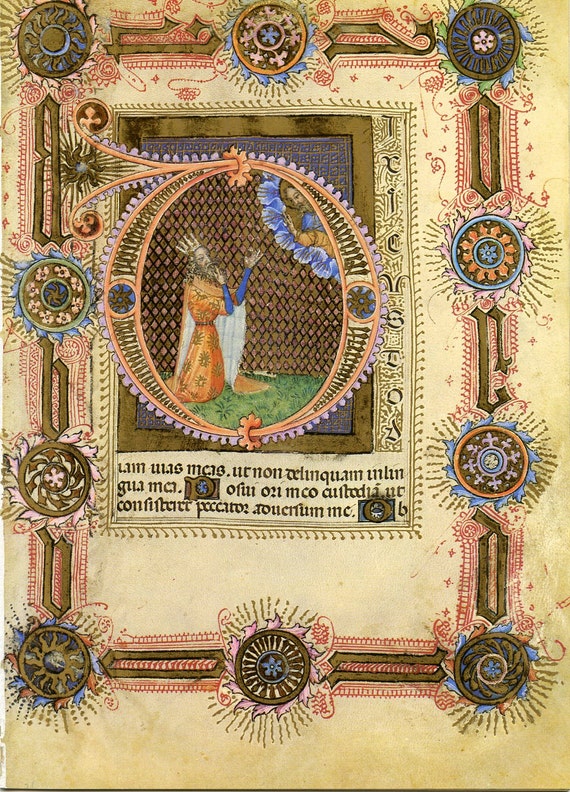 D
IXICUSTOD
iam uias meas. ut non delinquam in lin
gua mea. Posui ori meo custodiā ut
consisteret peccator aduersum me. Ob